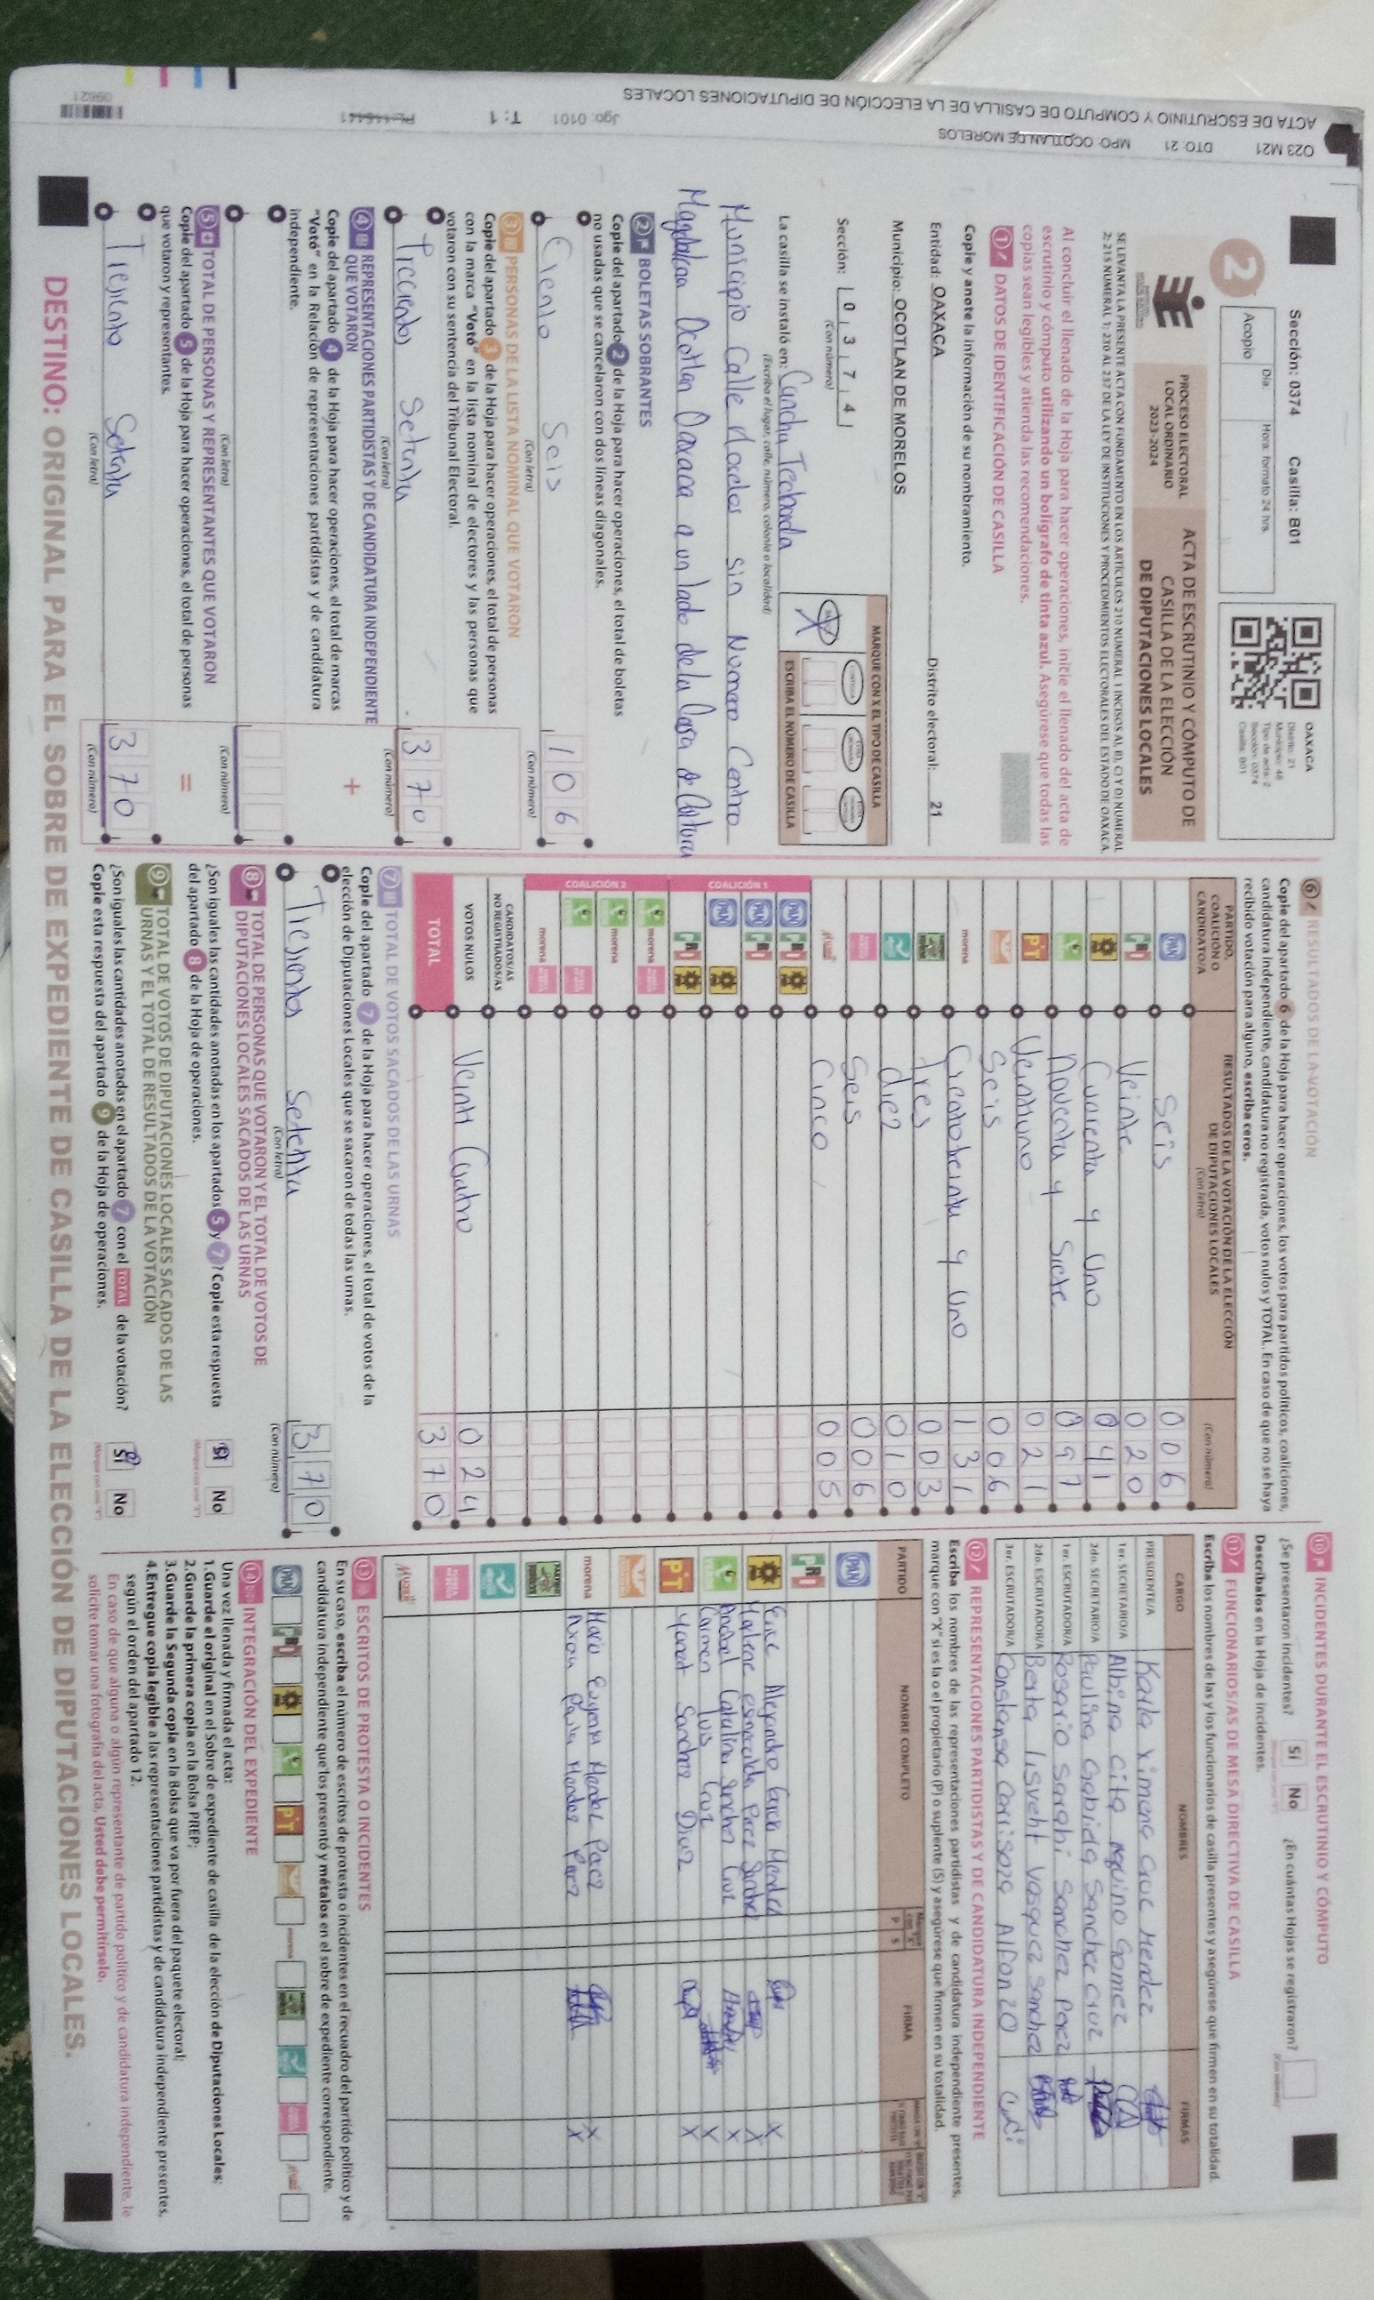 ACTA DE ESCRUTINIO Y CÓMPUTO DE CASILLA DE LA ELECCIÓN DE DIPUTACIONES LOCALES
O23 M21 DTO: 21 MPO: OCOTLAN DE MORELOS
Jgo: 0101 T: 1
09621
Sección: 0374 Casilla: B01
2
Acopio
Día:
Hora: formato 24 hrs.
OAXACA
Distrito: 21
Municipio: 48
Tipo de acta: 2
Sección: 0374
Casilla: B01
PROCESO ELECTORAL
LOCAL ORDINARIO
2023-2024
ACTA DE ESCRUTINIO Y CÓMPUTO DE
CASILLA DE LA ELECCIÓN
DE DIPUTACIONES LOCALES
Al concluir el llenado de la Hoja para hacer operaciones, inicie el llenado del acta de
escrutinio y cómputo utilizando un bolígrafo de tinta azul. Asegúrese que todas las
copias sean legibles y atienda las recomendaciones.
1 DATOS DE IDENTIFICACIÓN DE CASILLA
Copie y anote la información de su nombramiento.
Entidad: OAXACA Distrito electoral: 21
Municipio: OCOTLAN DE MORELOS
Sección: 0 3 7 4
(Con número)
MARQUE CON X EL TIPO DE CASILLA
X
ESCRIBA EL NÚMERO DE CASILLA
La casilla se instaló en: Cancha Techada
(Escriba el lugar, calle, número, colonia o localidad)
Municipio Calle Morelos Sin Numero Centro
Magdalena Ocotlan Oaxaca a un lado de la Casa de Cultura
2 BOLETAS SOBRANTES
Copie del apartado 2 de la Hoja para hacer operaciones, el total de boletas
no usadas que se cancelaron con dos líneas diagonales.
Ciento Seis 106
(Con letra) (Con número)
3 PERSONAS DE LA LISTA NOMINAL QUE VOTARON
Copie del apartado 3 de la Hoja para hacer operaciones, el total de personas
con la marca "Votó" en la lista nominal de electores y las personas que
votaron con su sentencia del Tribunal Electoral.
Trecientos Setenta 370
(Con letra) (Con número)
4 REPRESENTACIONES PARTIDISTAS Y DE CANDIDATURA INDEPENDIENTE
QUE VOTARON
+
Copie del apartado 4 de la Hoja para hacer operaciones, el total de marcas
"Votó" en la Relación de representaciones partidistas y de candidatura
independiente.
(Con letra) (Con número)
5 TOTAL DE PERSONAS Y REPRESENTANTES QUE VOTARON
=
Copie del apartado 5 de la Hoja para hacer operaciones, el total de personas
que votaron y representantes.
Tresiento Setenta 370
(Con letra) (Con número)
6 RESULTADOS DE LA VOTACIÓN
Copie del apartado 6 de la Hoja para hacer operaciones, los votos para partidos políticos, coaliciones,
candidatura independiente, candidatura no registrada, votos nulos y TOTAL. En caso de que no se haya
recibido votación para alguno, escriba ceros.
PARTIDO,
COALICIÓN O
CANDIDATO/A
RESULTADOS DE LA VOTACIÓN DE LA ELECCIÓN
DE DIPUTACIONES LOCALES
(Con letra)
(Con número)
PAN Seis 006
PRI Veinte 020
Cuarenta y Uno 041
Noventa y Siete 097
PT Veintiuno 021
Seis 006
morena Cientotreinta y Uno 131
Tres 003
diez 010
Seis 006
Cinco 005
COALICIÓN 1
COALICIÓN 2
CANDIDATOS/AS
NO REGISTRADOS/AS
VOTOS NULOS Veinti Cuatro 024
TOTAL 370
7 TOTAL DE VOTOS SACADOS DE LAS URNAS
Copie del apartado 7 de la Hoja para hacer operaciones, el total de votos de la
elección de Diputaciones Locales que se sacaron de todas las urnas.
Tresientos Setenta 370
(Con letra) (Con número)
8 TOTAL DE PERSONAS QUE VOTARON Y EL TOTAL DE VOTOS DE
DIPUTACIONES LOCALES SACADOS DE LAS URNAS
¿Son iguales las cantidades anotadas en los apartados 5 y 7? Copie esta respuesta
del apartado 8 de la Hoja de operaciones.
Sí No
9 TOTAL DE VOTOS DE DIPUTACIONES LOCALES SACADOS DE LAS
URNAS Y EL TOTAL DE RESULTADOS DE LA VOTACIÓN
¿Son iguales las cantidades anotadas en el apartado 7 con el TOTAL de la votación?
Copie esta respuesta del apartado 9 de la Hoja de operaciones.
Sí No
10 INCIDENTES DURANTE EL ESCRUTINIO Y CÓMPUTO
¿Se presentaron incidentes? Sí No ¿En cuántas Hojas se registraron?
Descríbalos en la Hoja de incidentes.
11 FUNCIONARIOS/AS DE MESA DIRECTIVA DE CASILLA
Escriba los nombres de las y los funcionarios de casilla presentes y asegúrese que firmen en su totalidad.
CARGO NOMBRES FIRMAS
PRESIDENTE/A Karla Ximena Cruz Mendez
1er. SECRETARIO/A Albina Cita Aquino Gomez
2do. SECRETARIO/A Paulina Gabriela Sanchez Cruz
1er. ESCRUTADOR/A Rosario Sarahi Sanchez Paez
2do. ESCRUTADOR/A Berta Lisveht Vasquez Sanchez
3er. ESCRUTADOR/A Constansa Carrisoza Alfonzo
12 REPRESENTACIONES PARTIDISTAS Y DE CANDIDATURA INDEPENDIENTE
Escriba los nombres de las representaciones partidistas y de candidatura independiente presentes,
marque con "X" si es la o el propietario (P) o suplente (S) y asegúrese que firmen en su totalidad.
PARTIDO NOMBRE COMPLETO P S FIRMA
PAN
PRI Alejandro Mendez X
Esmeralda Paez Sanchez X
Catalina Sanchez Cruz X
Carmen Luis Cruz X
PT Yanet Sanchez Diaz X
morena Maria Eugenia Mendez Paez X
Mendez Paez X
13 ESCRITOS DE PROTESTA O INCIDENTES
En su caso, escriba el número de escritos de protesta o incidentes en el recuadro del partido político y de
candidatura independiente que los presentó y métalos en el sobre de expediente correspondiente.
14 INTEGRACIÓN DEL EXPEDIENTE
Una vez llenada y firmada el acta:
1.Guarde el original en el Sobre de expediente de casilla de la elección de Diputaciones Locales;
2.Guarde la primera copia en la Bolsa PREP;
3.Guarde la Segunda copia en la Bolsa que va por fuera del paquete electoral;
4.Entregue copia legible a las representaciones partidistas y de candidatura independiente presentes,
según el orden del apartado 12.
En caso de que alguna o algún representante de partido político y de candidatura independiente, le
solicite tomar una fotografía del acta, Usted debe permitírselo.
DESTINO: ORIGINAL PARA EL SOBRE DE EXPEDIENTE DE CASILLA DE LA ELECCIÓN DE DIPUTACIONES LOCALES.